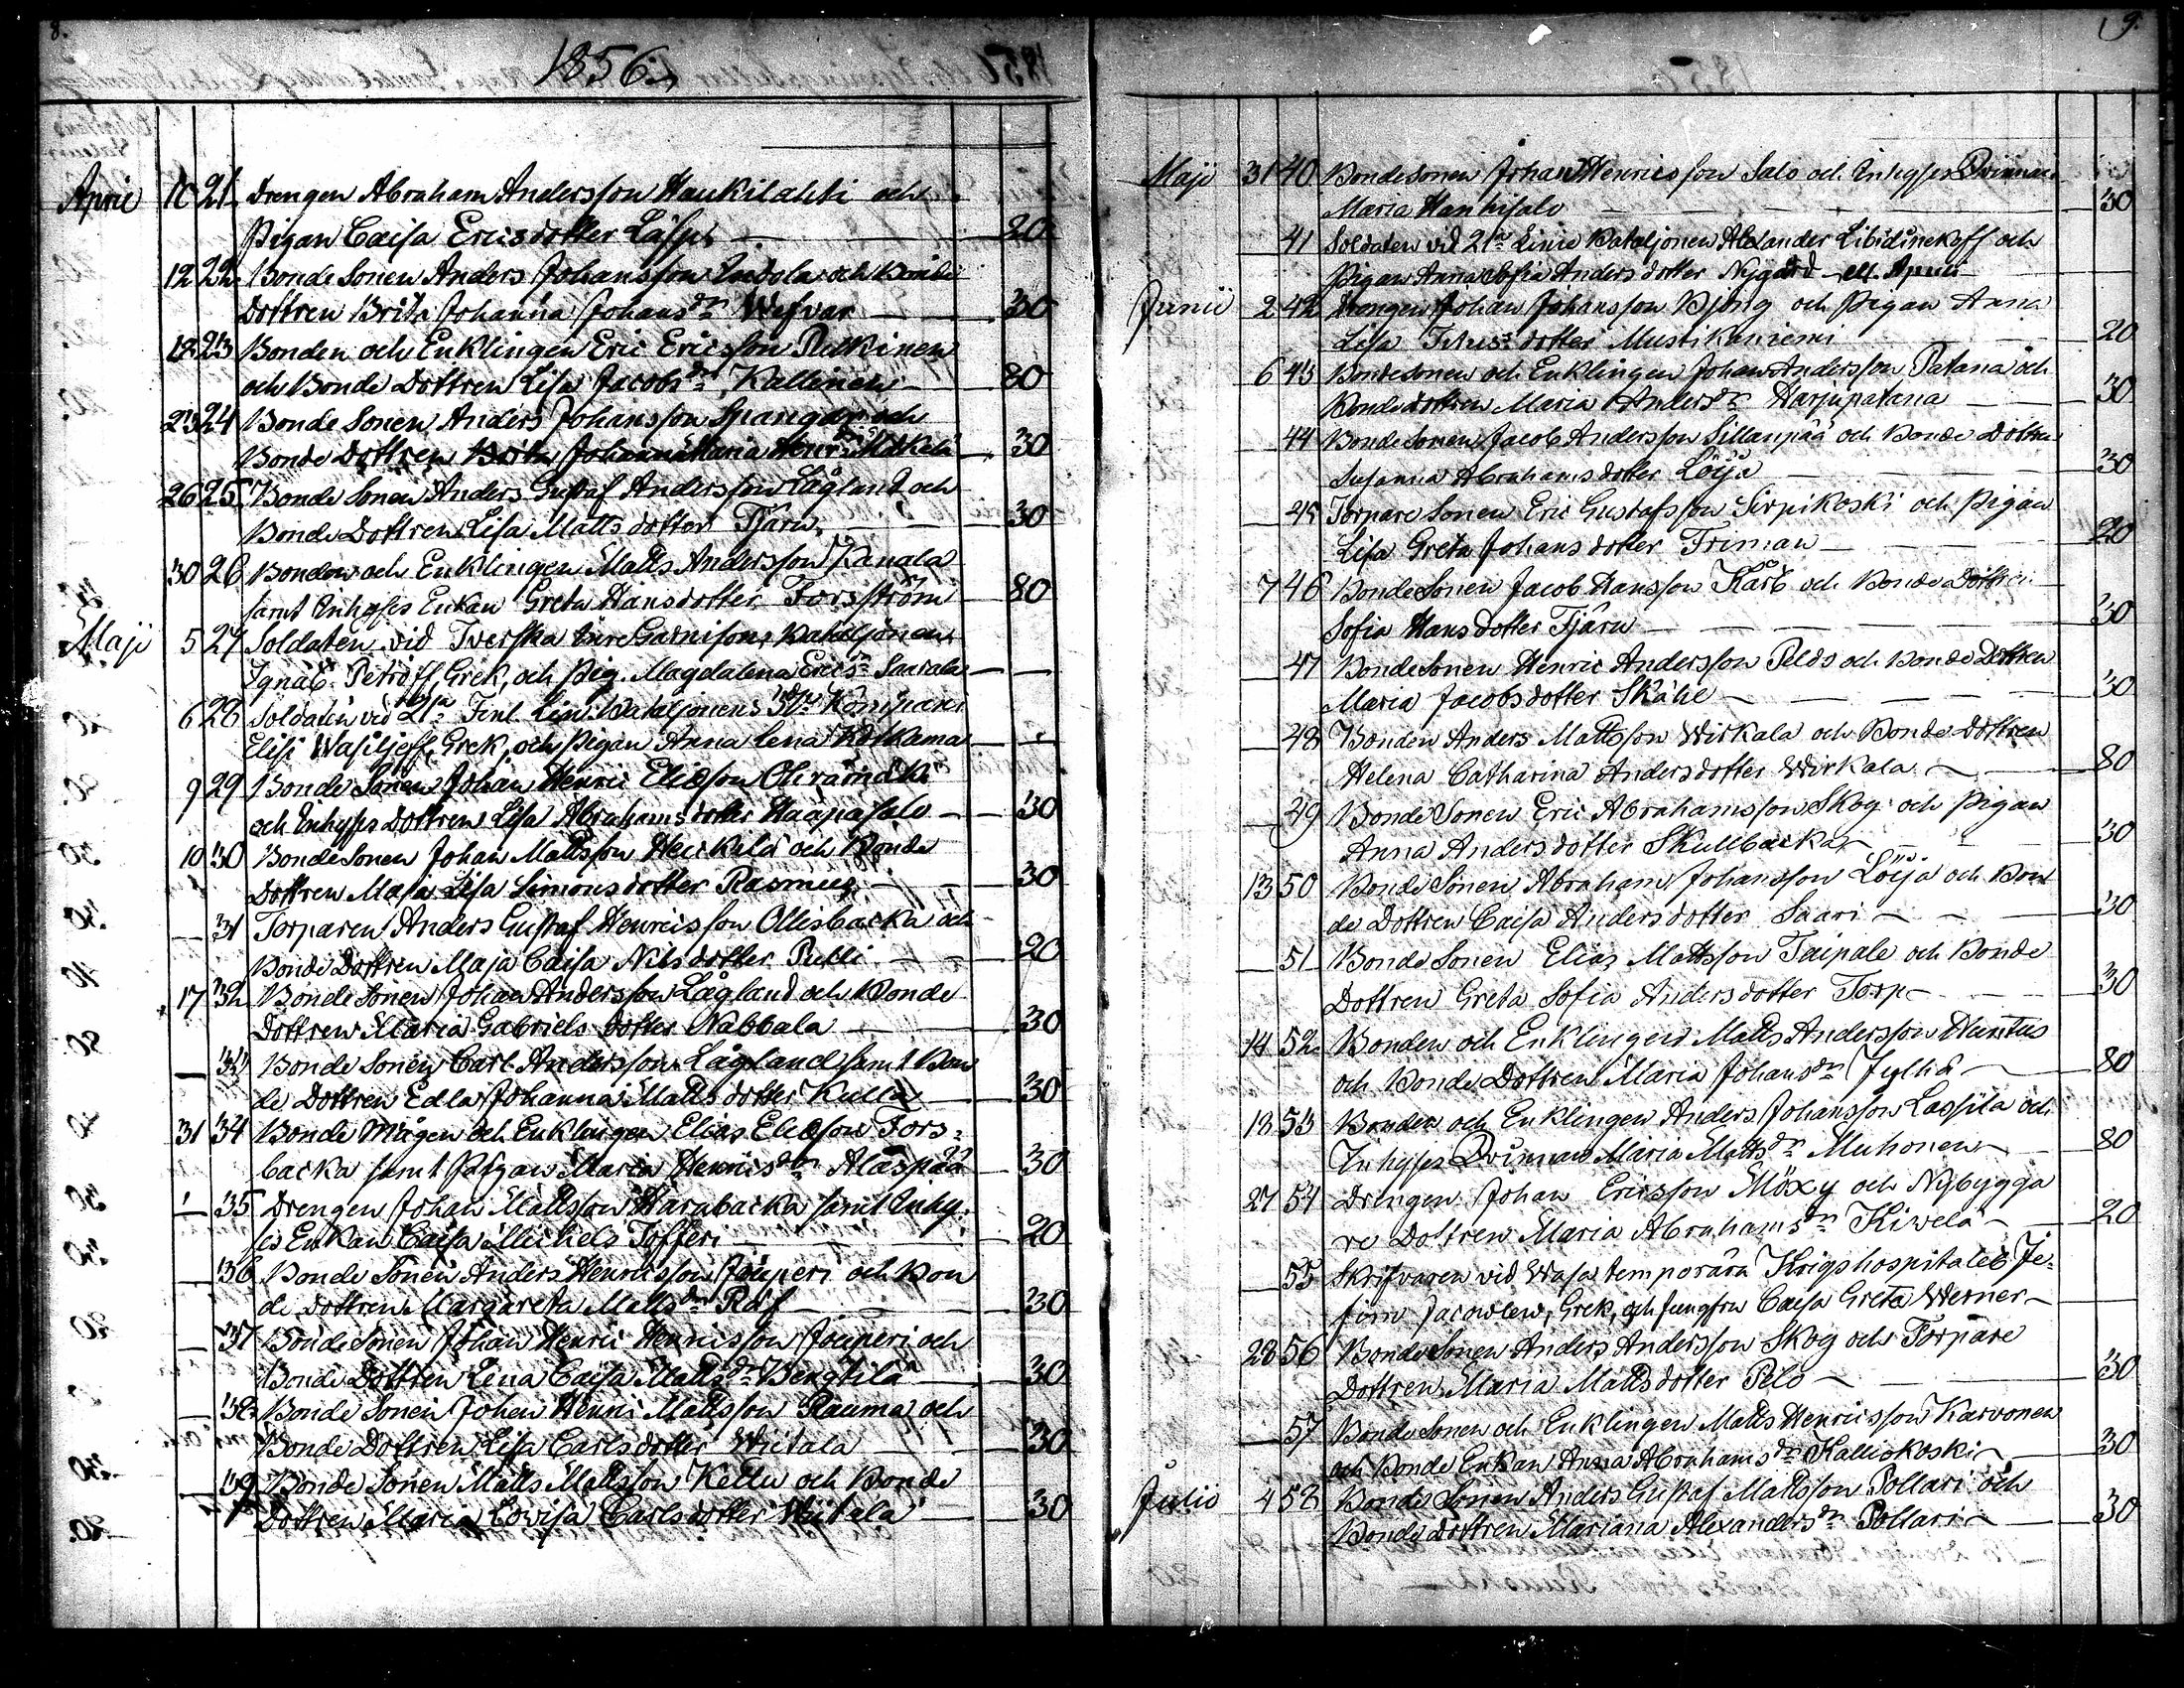 8.
1856.
April 10 21. Drengen Abraham Andersson Haukilahti och
Pigan Caisa Ericsdotter Läspi 20.
12 22. Bonde Sonen Anders Johansson Indola och Bonde
Dottren Brita Johanna Johansdr Wefvar 30
18 23 Bonden och Enklingen Eric Ericsson Pelkinen
och Bonde Dottren Lisa Jacobsdr Kallinen 80
23 24 Bonde Sonen Anders Johansson Spangar och
Bonde Dottren Brita Johanna Maria Henrdr Mäkelä 30
26 25 Bonde Sonen Anders Gustaf Andersson Lågland och
Bonde Dottren Lisa Matts dotter Tjäru 30
30 26 Bonden och Enklingen Matts Andersson Kanala
samt Inhyses Enkan Greta Hansdotter Forsström 80
Maji 5 27 Soldaten vid Twerska Inre Garnisons Bataljonen
Ignat Petroff, Grek, och Pig. Magdalena Ericsdr Saarala
6 28 Soldaten vid 21a Finl. Lin. Bataljonens 3dje Kompani
Elisi Wasiljeff, Grek, och Pigan Anna Lena Korkama
9 29 Bonde Sonen Johan Henric Eliesson Ohramäki
och Inhyses Dottren Lisa Abrahamsdotter Haapasalo 30
10 30 Bonde Sonen Johan Mattsson Heikkilä och Bonde
Dottren Maja Lisa Simonsdotter Rasmus 30
31 Torparen Anders Gustaf Henricsson Ollisbacka och
Bonde Dottren Maja Caisa Nilsdotter Pulli 20
17 32 Bonde Sonen Johan Andersson Lågland och Bonde
Dottren Maria Gabriels dotter Nabbala 30
33 Bonde Sonen Carl Andersson Lågland samt Bon
de Dottren Edla Johanna Matts dotter Kulla 30
31 34 Bonde Mågen och Enklingen Elias Eliesson Fors-
backa samt Pigan Maria Henricsdr Alaspää 30
35 Drengen Johan Mattsson Harabacka samt Inhy-
ses Enkan Caisa Michels Tofferi 20
36 Bonde Sonen Anders Henricsson Jouperi och Bon
de Dottren Margareta Mattsdr Räf 30
37 Bonde Sonen Johan Henric Henricsson Jouperi och
Bonde Dottren Lena Caisa Mattsdr Bengtilä 30
38 Bonde Sonen Johan Henric Mattsson Rauma och
Bonde Dottren Lisa Carlsdotter Wiitala 30
39 Bonde Sonen Matts Mattsson Kellu och Bonde
Dottren Maria Lovisa Carlsdotter Wiitala 30
9.
Maji 31 40 Bondesonen Johan Henricsson Salo och Inhyses Qvinnan
Maria Hanhisalo 30
41 Soldaten vid 21a Linie Bataljonen Alexander Libidinekoff och
Pigan Anna Sofia Anders dotter Nygård
Junii 2 42 Drengen Johan Johansson Björg och Pigan Anna
Lisa dotter Mustikaniemi 20
6 43 Bondesonen och Enklingen Johan Andersson Patana och
Bondedottren Maria Andersdr Harjupatana 30
44 Bonde Sonen Jacob Andersson Sillanpää och Bonde Dottren
Susanna Abrahamsdotter Löija 30
45 Torpare Sonen Eric Gustafsson Sirpikoski och Pigan
Lisa Greta Johans dotter Friman 20
7 46 Bonde Sonen Jacob Hansson Kårb och Bonde Dottren
Sofia Hans dotter Tjäru 30
47 Bonde Sonen Henric Andersson Pelds och Bonde Dottren
Maria Jacobsdotter Skähe 30
48 Bonden Anders Mattsson Wirkala och Bonde Dottren
Helena Catharina Andersdotter Wirkala 80
49 Bonde Sonen Eric Abrahamsson Skog och Pigan
Anna Anders dotter Skullbacka 30
13 50 Bonde Sonen Abraham Johansson Löija och Bon
de Dottren Caisa Andersdotter Saari 30
51 Bonde Sonen Elias Mattsson Taipale och Bonde
Dottren Greta Sofia Andersdotter Torp 30
14 52 Bonden och Enklingen Matts Andersson Huntus
och Bonde Dottren Maria Johansdr Jylhä 80
18 53 Bonden och Enklingen Anders Johansson Lassila och
Inhyses Qvinnan Maria Mattsdr Muhonen 80
27 54 Drengen Johan Ericsson Möxy och Nybygga
re Dottren Maria Abrahamsdr Kiwelä 20
55 Skrifvaren vid Wasa temporära Krigshospitalet Je-
fim Jacowlew, Grek, och Jungfru Caisa Greta Werner
28 56 Bonde Sonen Anders Andersson Skog och Torpare
Dottren Maria Mattsdotter Pelo 30
57 Bonde Sonen och Enklingen Matts Henricsson Karvonen
och Bonde Enkan Anna Abrahamsdr Kalliokoski 30
Julii 4 58 Bonde Sonen Anders Gustaf Mattsson Pollari och
Bonde Dottren Mariana Alexandersdr Pollari 30